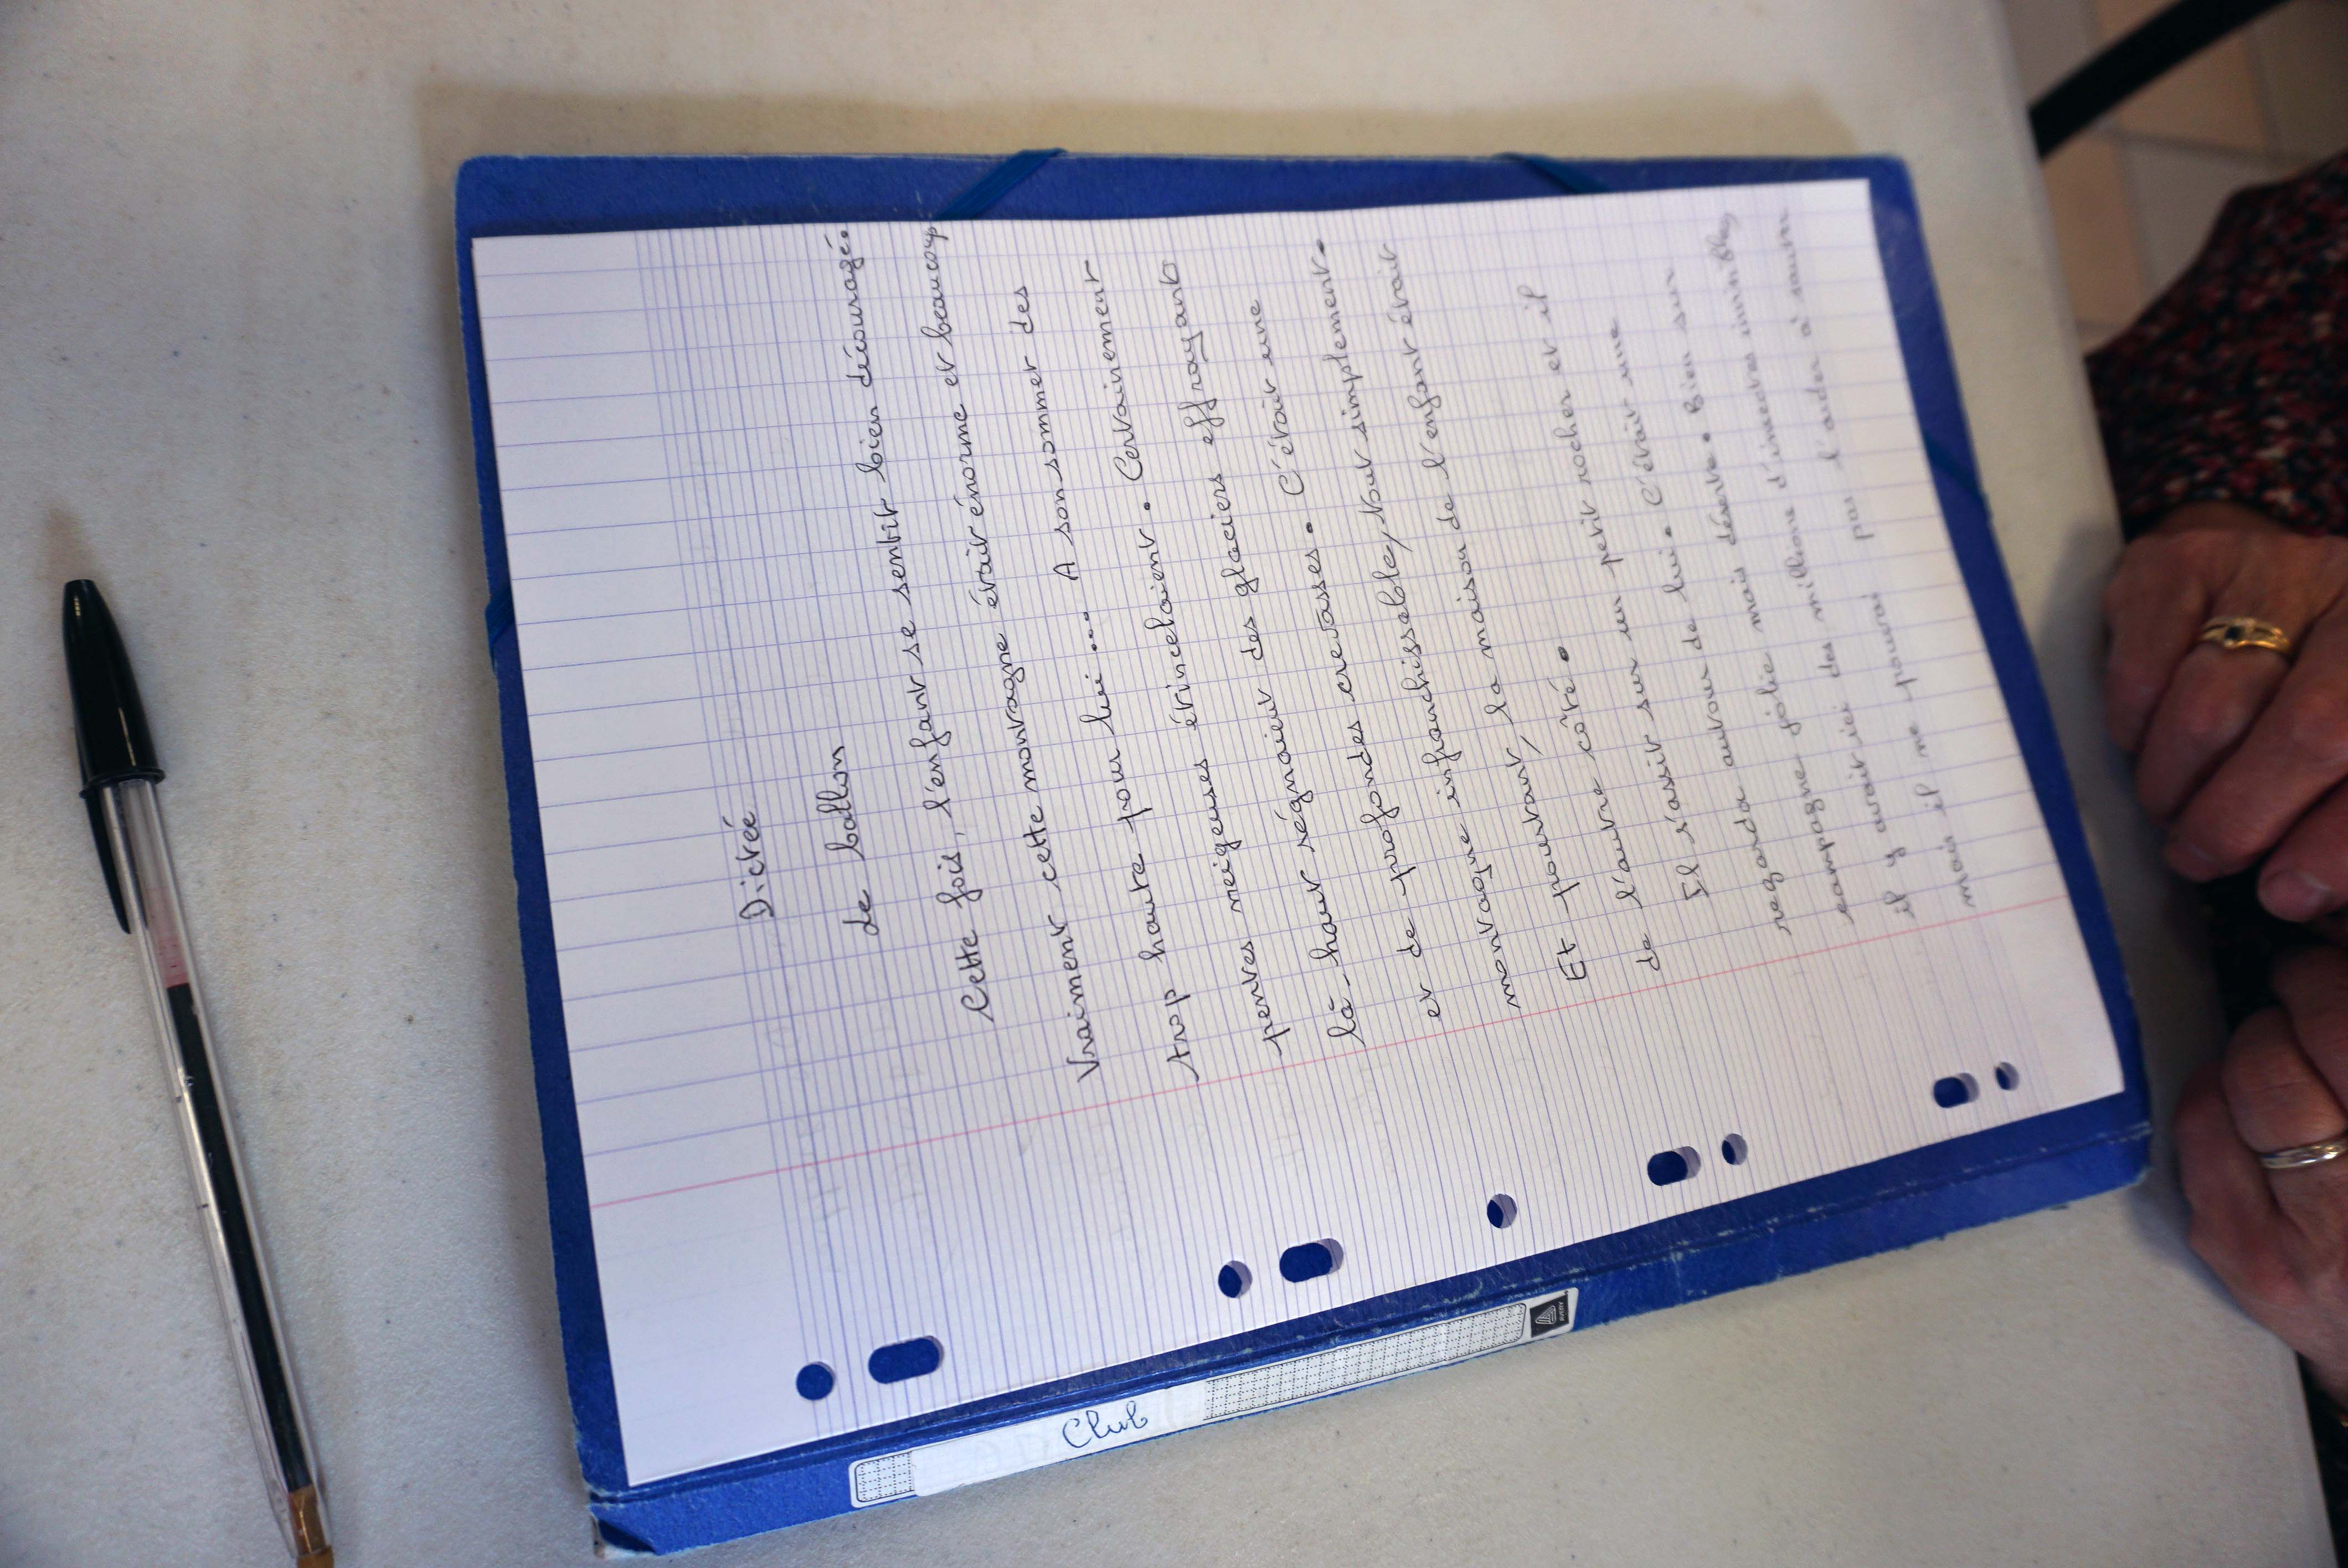 Dictée
Le ballon
Cette fois, l'enfant se sentit bien découragé.
Vraiment cette montagne était énorme et beaucoup
trop haute pour lui... A son sommet des
pentes neigeuses étincelaient. Certainement
là-haut régnaient des glaciers effroyants
et de profondes crevasses. C'était une
montagne infranchissable, tout simplement.
Et pourtant, la maison de l'enfant était
de l'autre côté.
Il s'assit sur un petit rocher et il
regarda autour de lui. C'était une
campagne jolie mais déserte. Bien sur
il y avait ici des millions d'insectes invisibles
mais il ne pouvai pas l'aider à
Club
AVERY